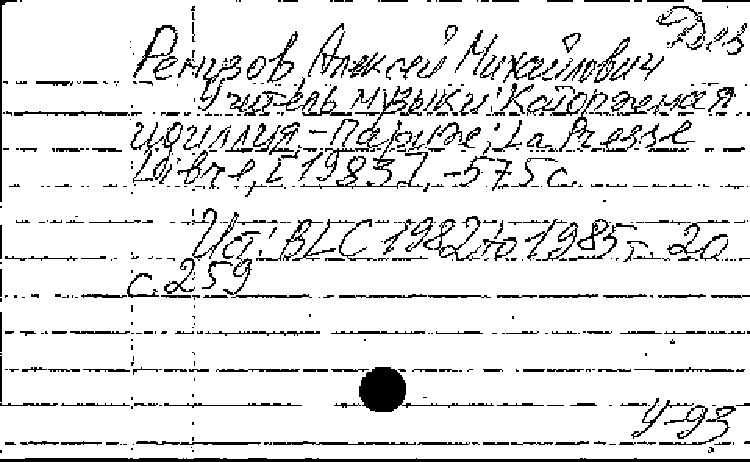 Ремизов Алексей Михайлович
Учитель музыки: Каторжная
идиллия. - Париж: La Presse
Libre, [1983], - 575 с.
Ист: BLC 1982 to 1985, т. 20
с. 259
У-93